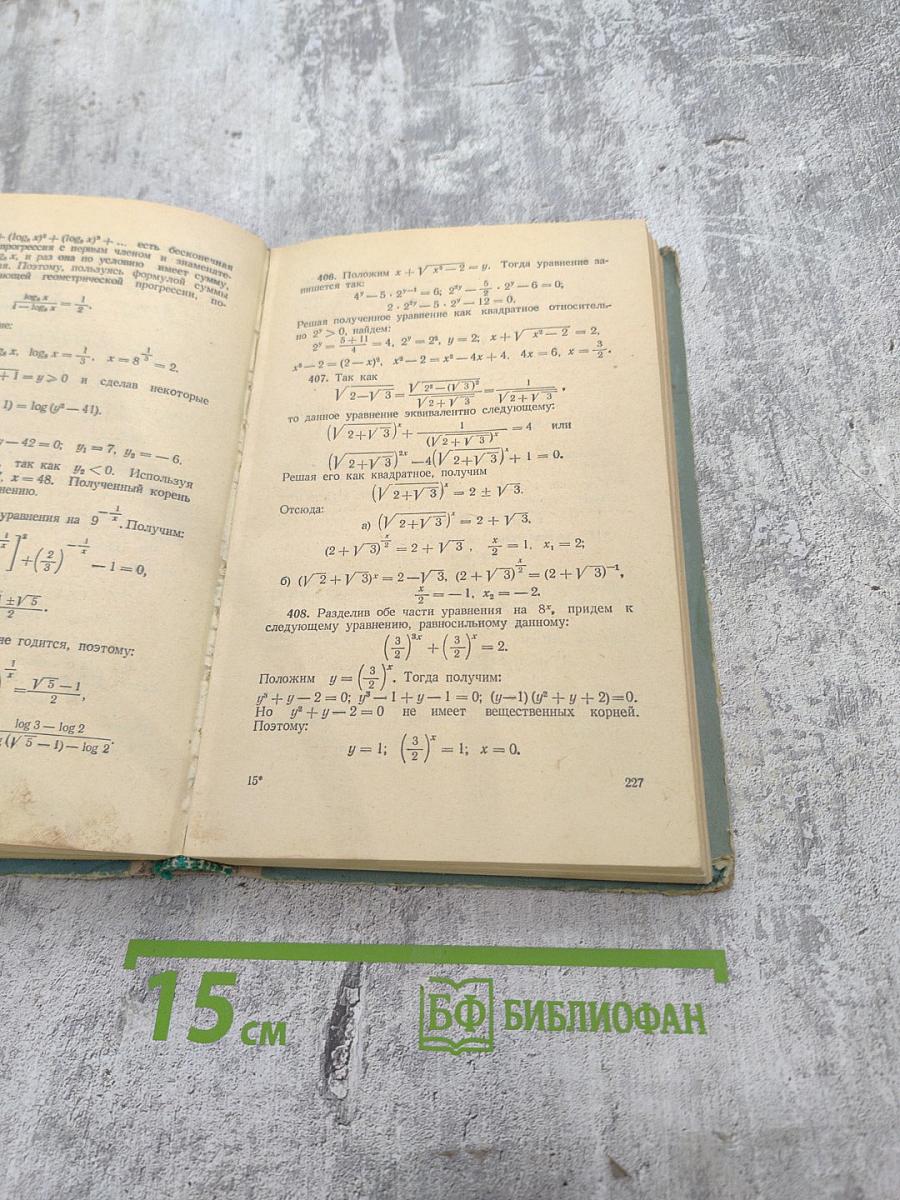 + (log₈ x)² + (log₈ x)³ + ... есть бесконечная
прогрессия с первым членом и знаменате-
x, и раз она по условию имеет сумму,
Поэтому, пользуясь формулой суммы
ющей геометрической прогрессии, по-
log₈ x / (1 — log₈ x) = 1/2.
ие:
x, log₈ x = 1/3, x = 8^(1/3) = 2.
+ 1 = y > 0 и сделав некоторые
1) = log (y² — 41).
y — 42 = 0; y₁ = 7, y₂ = — 6.
так как y₂ < 0. Используя
x = 48. Полученный корень
нению.
уравнения на 9^(—1/x). Получим:
]² + (2/3)^(—1/x) — 1 = 0,
± √5 / 2.
не годится, поэтому:
^(1/x) = (√5 — 1)/2,
log 3 — log 2
(√5 — 1) — log 2.
406. Положим x + √(x² — 2) = y. Тогда уравнение за-
пишется так:
4^y — 5 · 2^(y—1) = 6; 2^(2y) — 5/2 · 2^y — 6 = 0;
2 · 2^(2y) — 5 · 2^y — 12 = 0,
Решая полученное уравнение как квадратное относитель-
но 2^y > 0, найдем:
2^y = (5 + 11)/4 = 4, 2^y = 2², y = 2; x + √(x² — 2) = 2,
x² — 2 = (2 — x)², x² — 2 = x² — 4x + 4, 4x = 6, x = 3/2.
407. Так как
√(2 — √3) = √(2² — (√3)²) / √(2 + √3) = 1 / √(2 + √3),
то данное уравнение эквивалентно следующему:
(√(2 + √3))^x + 1 / (√(2 + √3))^x = 4 или
(√(2 + √3))^(2x) — 4(√(2 + √3))^x + 1 = 0.
Решая его как квадратное, получим
(√(2 + √3))^x = 2 ± √3.
Отсюда:
а) (√(2 + √3))^x = 2 + √3,
(2 + √3)^(x/2) = 2 + √3, x/2 = 1, x₁ = 2;
б) (√2 + √3)^x = 2 — √3, (2 + √3)^(x/2) = (2 + √3)^(—1),
x/2 = — 1, x₂ = — 2.
408. Разделив обе части уравнения на 8^x, придем к
следующему уравнению, равносильному данному:
(3/2)^(3x) + (3/2)^x = 2.
Положим y = (3/2)^x. Тогда получим:
y³ + y — 2 = 0; y³ — 1 + y — 1 = 0; (y — 1) (y² + y + 2) = 0.
Но y² + y — 2 = 0 не имеет вещественных корней.
Поэтому:
y = 1; (3/2)^x = 1; x = 0.
15*
227
15 см
БФ БИБЛИОФАН